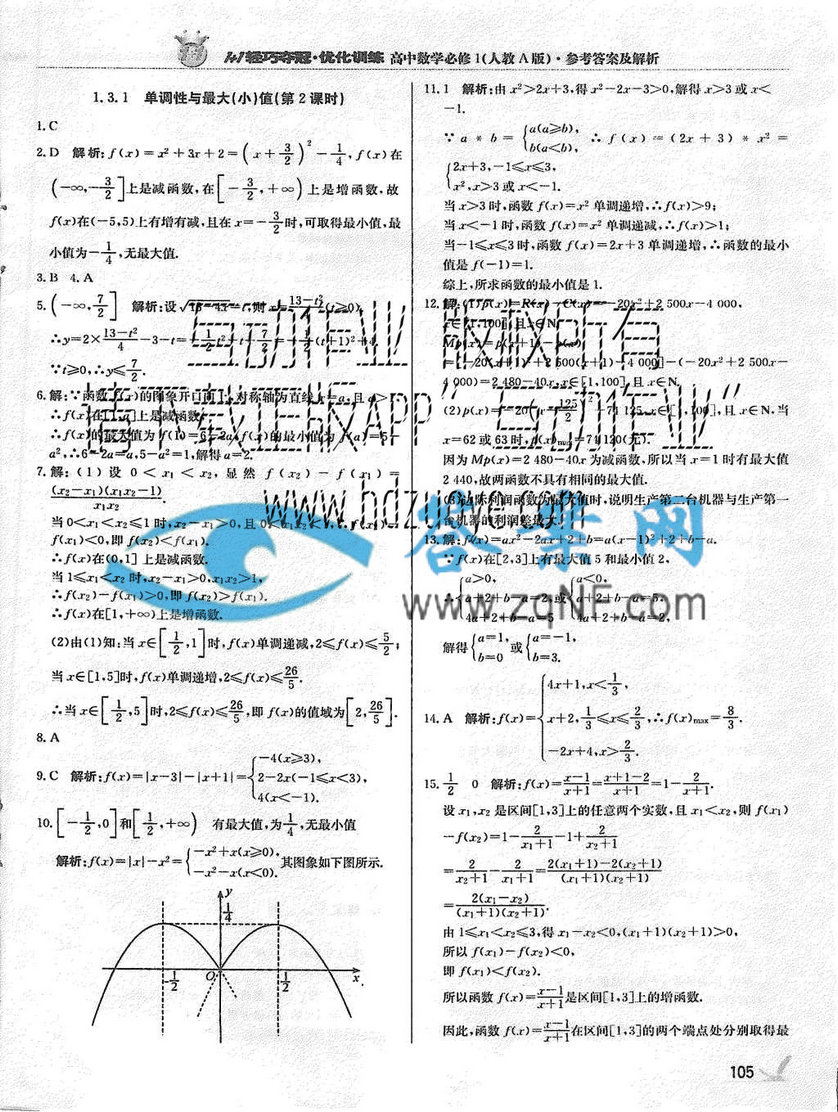 1+1轻巧夺冠·优化训练 高中数学必修1(人教A版)·参考答案及解析
1.3.1 单调性与最大(小)值(第2课时)
1.C
2.D 解析:f(x)=x²+3x+2=(x+3/2)²-1/4,f(x)在
(-∞,-3/2]上是减函数,在[-3/2,+∞)上是增函数,故
f(x)在(-5,5)上有增有减,且在x=-3/2时,可取得最小值,最
小值为-1/4,无最大值.
3.B 4.A
5.(-∞,7/2] 解析:设√13-4x=t,则x=(13-t²)/4(t≥0),
∴y=2×(13-t²)/4-3-t=-1/2t²-t+7/2=-1/2(t+1)²+4.
∵t≥0,∴y≤7/2.
6.解:∵函数f(x)的图象开口向上,对称轴为直线x=a,且a>1,
∴f(x)在[1,a]上是减函数,
∴f(x)的最大值为f(1)=6-2a,f(x)的最小值为f(a)=5-
a²,∴6-2a=a,5-a²=1,解得a=2.
7.解:(1)设0<x₁<x₂,显然f(x₂)-f(x₁)=
(x₂-x₁)(x₁x₂-1)/x₁x₂.
当0<x₁<x₂≤1时,x₂-x₁>0,且0<x₁x₂<1,f(x₂)-
f(x₁)<0,即f(x₂)<f(x₁).
∴f(x)在(0,1]上是减函数.
当1≤x₁<x₂时,x₂-x₁>0,x₁x₂>1,
∴f(x₂)-f(x₁)>0,即f(x₂)>f(x₁).
∴f(x)在[1,+∞)上是增函数.
(2)由(1)知:当x∈[1/2,1]时,f(x)单调递减,2≤f(x)≤5/2;
当x∈[1,5]时,f(x)单调递增,2≤f(x)≤26/5.
∴当x∈[1/2,5]时,2≤f(x)≤26/5,即f(x)的值域为[2,26/5].
8.A
9.C 解析:f(x)=|x-3|-|x+1|={-4(x≥3),
2-2x(-1≤x<3),
4(x<-1).
10.[-1/2,0]和[1/2,+∞) 有最大值,为1/4,无最小值
解析:f(x)=|x|-x²={-x²+x(x≥0),
-x²-x(x<0). 其图象如下图所示.
y
1/4
-1/2 O 1/2 x
11.1 解析:由x²>2x+3,得x²-2x-3>0,解得x>3或x<
-1.
∵a*b={a(a≥b),
b(a<b), ∴f(x)=(2x+3)*x²=
{2x+3,-1≤x≤3,
x²,x>3或x<-1.
当x>3时,函数f(x)=x²单调递增,∴f(x)>9;
当x<-1时,函数f(x)=x²单调递减,∴f(x)>1;
当-1≤x≤3时,函数f(x)=2x+3单调递增,∴函数的最小
值是f(-1)=1.
综上,所求函数的最小值是1.
12.解:(1)p(x)=R(x)-C(x)=-20x²+2 500x-4 000,
x∈[1,100],且x∈N,
Mp(x)=p(x+1)-p(x)
=[-20(x+1)²+2 500(x+1)-4 000]-(-20x²+2 500x-
4 000)=2 480-40x,x∈[1,100],且x∈N.
(2)p(x)=-20(x-125/2)²+74 125,x∈[1,100],且x∈N.当
x=62或63时,p(x)max=74 120(元).
因为Mp(x)=2 480-40x为减函数,所以当x=1时有最大值
2 440,故两函数不具有相同的最大值.
(3)边际利润函数为最大值时,说明生产第二台机器与生产第一
台机器的利润差最大.
13.解:f(x)=ax²-2ax+2+b=a(x-1)²+2+b-a.
∵f(x)在[2,3]上有最大值5和最小值2,
∴{a>0,
4a+2+b-4a=2,
4a+2+b-a=5 或{a<0,
4a+2+b-4a=5,
4a+2+b-a=2,
解得{a=1,
b=0 或{a=-1,
b=3.
14.A 解析:f(x)={4x+1,x<1/3,
x+2,1/3≤x≤2/3,
-2x+4,x>2/3. ∴f(x)max=8/3.
15.1/2 0 解析:f(x)=(x-1)/(x+1)=(x+1-2)/(x+1)=1-2/(x+1).
设x₁,x₂是区间[1,3]上的任意两个实数,且x₁<x₂,则f(x₁)
-f(x₂)=1-2/(x₁+1)-1+2/(x₂+1)
=2/(x₂+1)-2/(x₁+1)=[2(x₁+1)-2(x₂+1)]/(x₁+1)(x₂+1)
=2(x₁-x₂)/(x₁+1)(x₂+1).
由1≤x₁<x₂≤3,得x₁-x₂<0,(x₁+1)(x₂+1)>0,
所以f(x₁)-f(x₂)<0,
即f(x₁)<f(x₂).
所以函数f(x)=(x-1)/(x+1)是区间[1,3]上的增函数.
因此,函数f(x)=(x-1)/(x+1)在区间[1,3]的两个端点处分别取得最
105
互动作业 版权所有
请下载正版APP"互动作业"
www.hdzuoye.com
答案网
www.zqNF.com